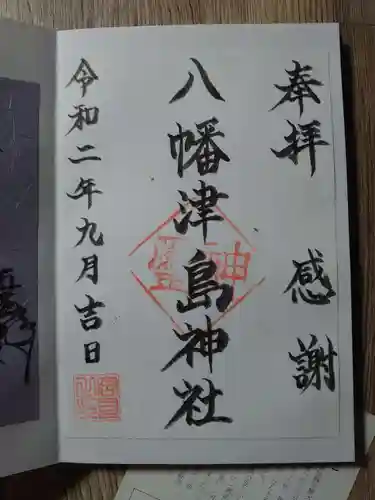 奉拝　感謝
八幡津島神社
令和二年九月吉日